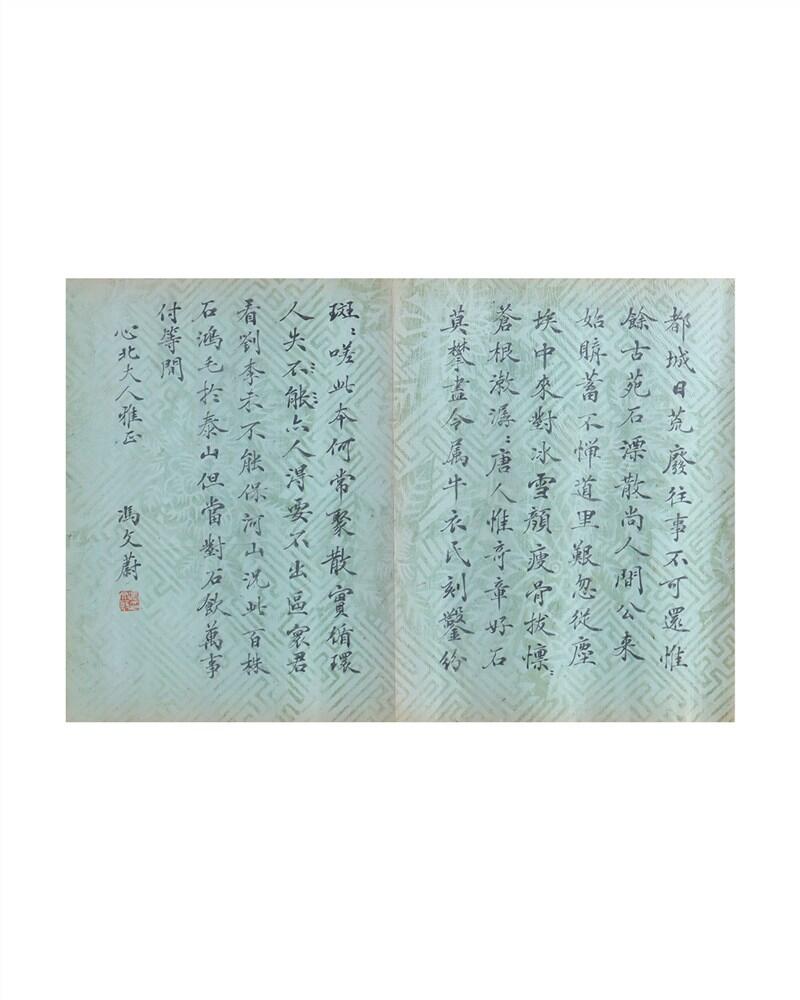 都城日荒廢往事不可還惟
餘古苑石漂散尚人間公来
始購蓄不惮道里艱忽從塵
埃中來對冰雪顏瘦骨拔懍〻
蒼根漱潺〻唐人惟奇章好石
莫攀盡令属牛衣氏刻鑿紛
斑〻嗟此本何常聚散實循環
人失不能亦人得要不出區寰君
看劉李末不能保河山況此百株
石鴻毛於泰山但當對石飲萬事
付等閒
心北大人雅正
馮文蔚